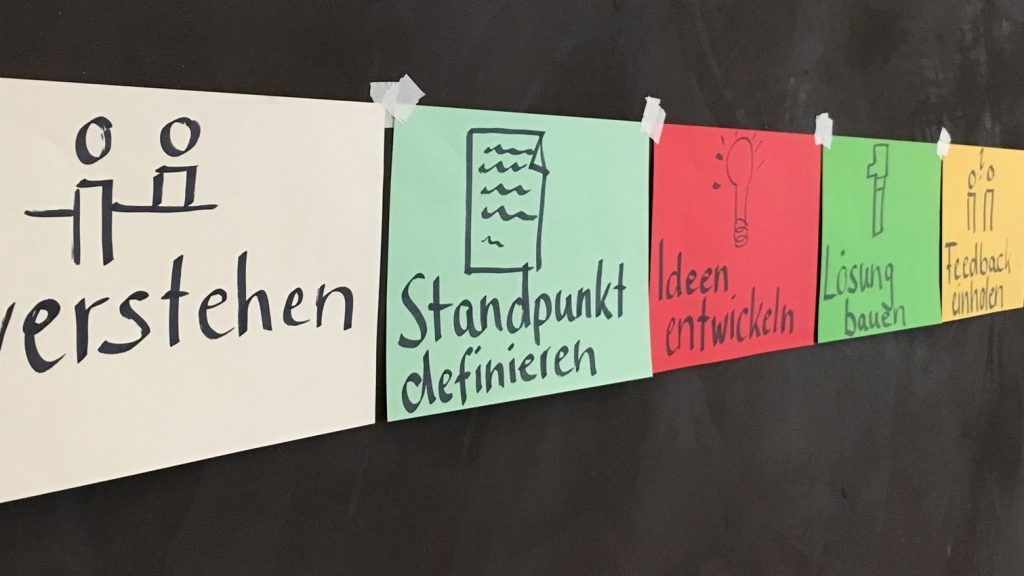 verstehen
Standpunkt
definieren
Ideen
entwickeln
Lösung
bauen
Feedback
einholen